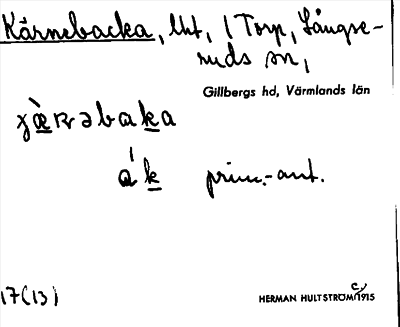 Kärnebacka, lht, 1 Torp, Långse-
ruds sn,
Gillbergs hd, Värmlands län
a k prim.-ant.
17(13)
HERMAN HULTSTRÖM c. 1915